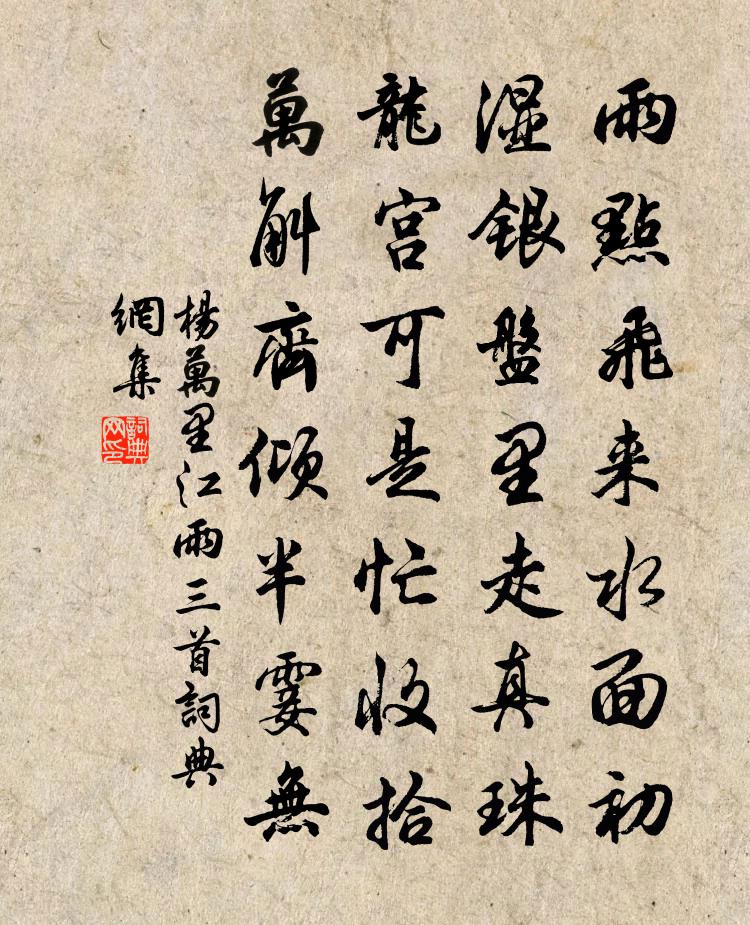 雨點飛来水面初
湿銀盤里走真珠
龍宮可是忙收拾
萬斛齊傾半霎無
楊萬里江雨三首詞典
網集
詞典网印